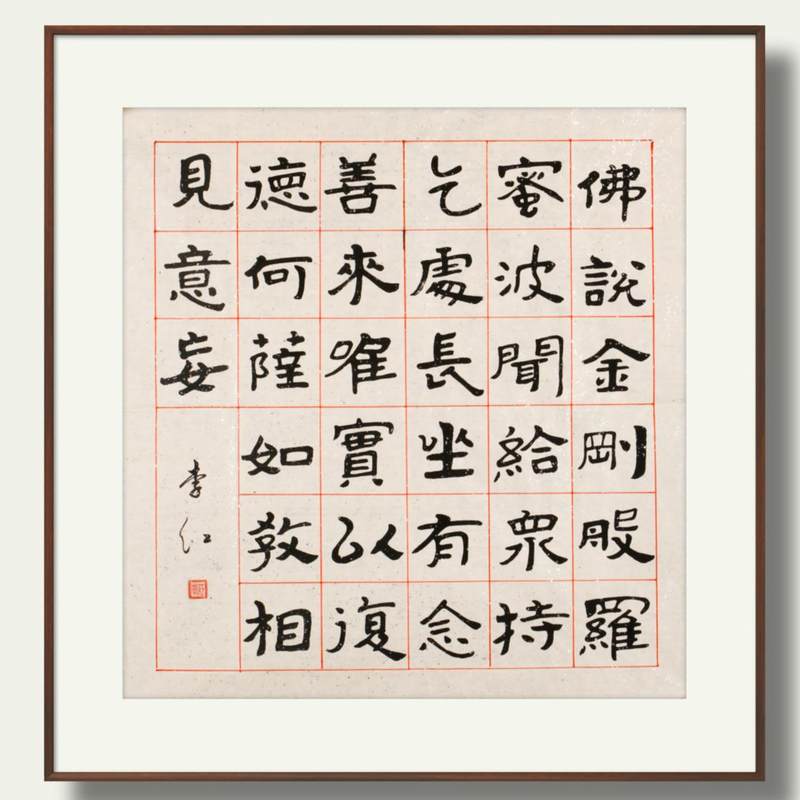 佛說金剛股羅
蜜波聞給衆持
乞處長坐有念
善來唯實以復
德何薩如教相
見意妄
李红